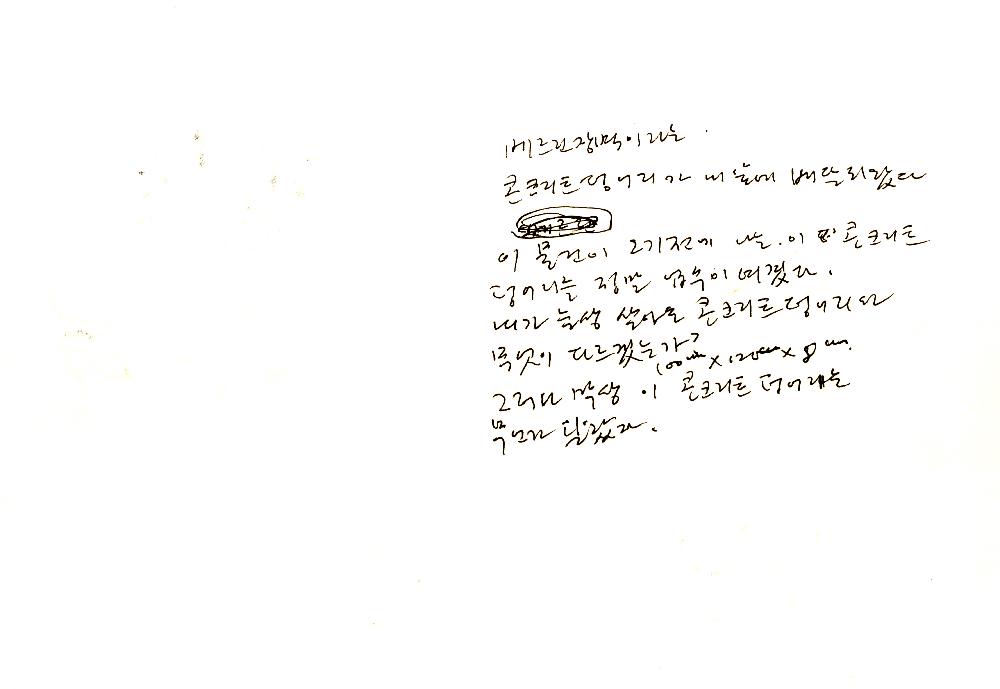 베르린장벽이라는
콘크리트덩어리가 내 눈에 배달되었다
이 물건이 오기전에 나는 이 콘크리트
덩어리를 정말 우습게 여겼다.
내가 늘상 살아온 콘크리트덩어리와
무엇이 다르겠는가?
100cm x 120cm x 8cm.
그러나 막상 이 콘크리트 덩어리는
무언가 달랐다.